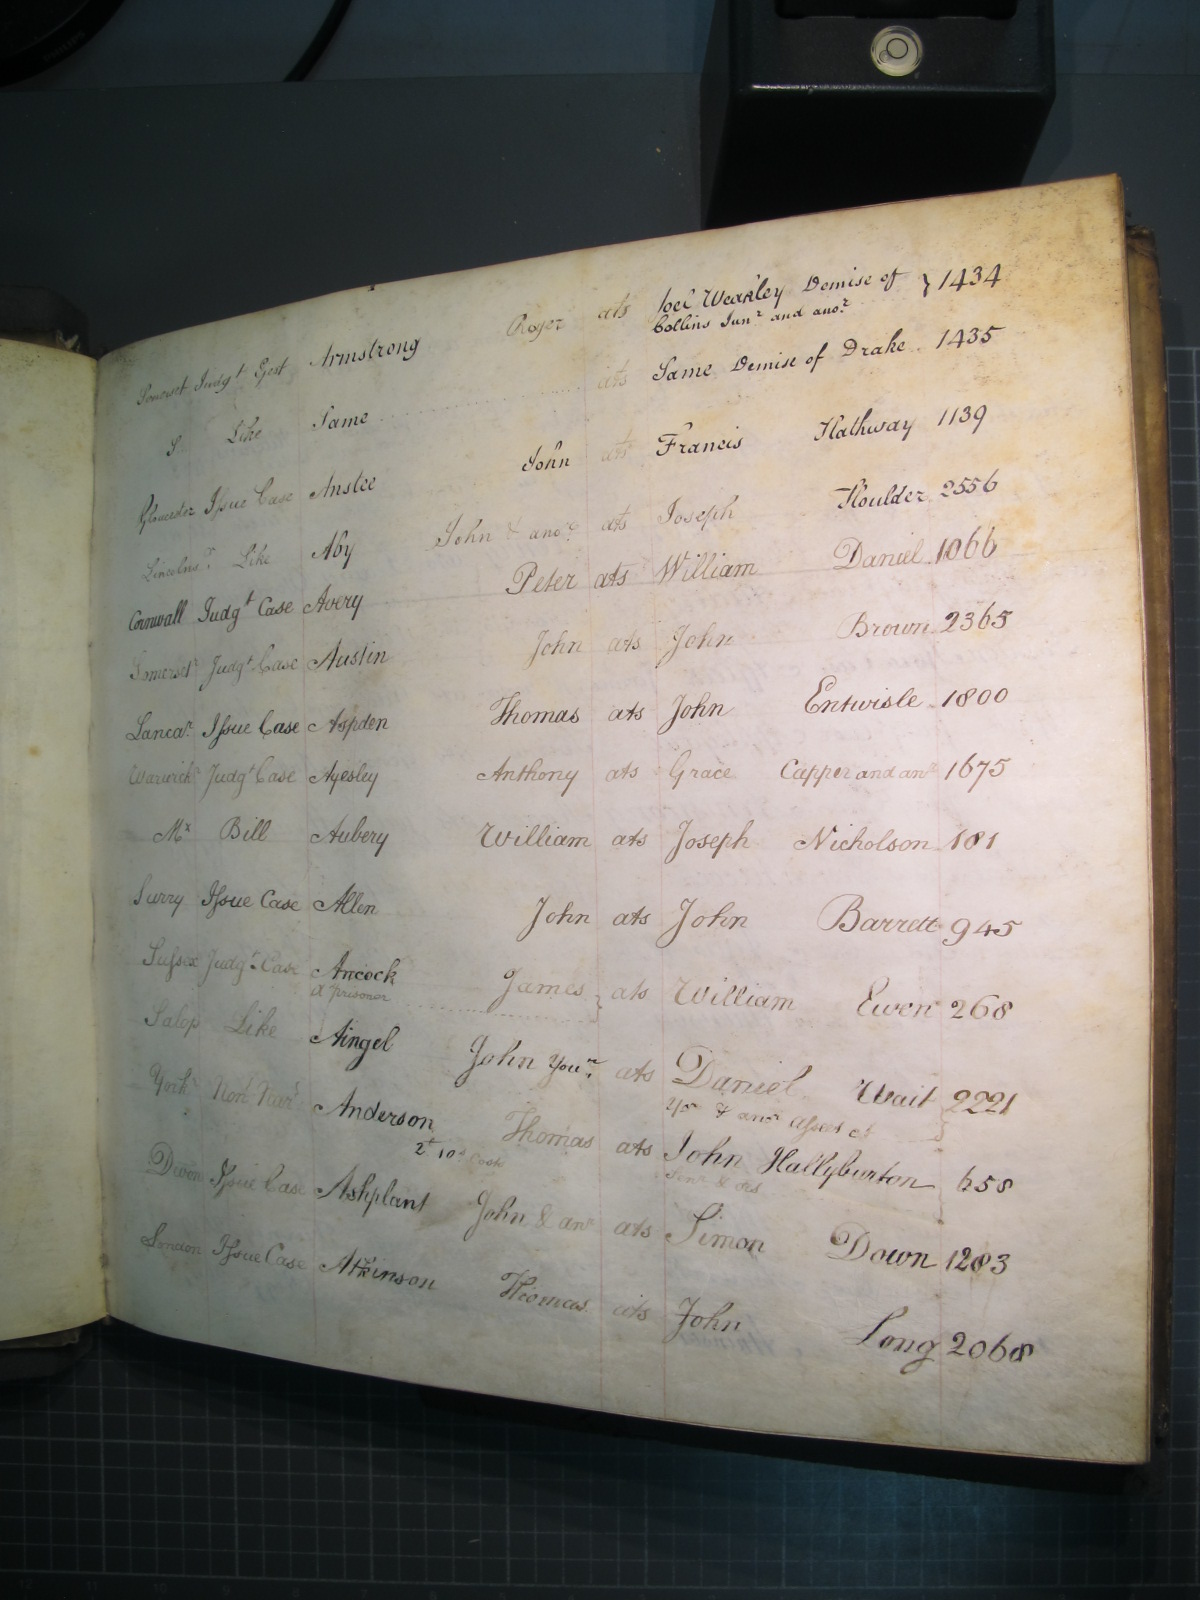 Somerset Judgt Ejest Armstrong Roger ats Joel Weakley Demise of } 1434
Collins Junr and anor
S. Like Same ats Same Demise of Drake 1435
Gloucester Issue Case Anstee John ats Francis Hathway 1139
Lincolns. Like Aby John & anor ats Joseph Houlder 2556
Cornwall Judgt Case Avery Peter ats William Daniel 1066
Somerset Judgt Case Austin John ats John Brown 2365
Lancar Issue Case Aspden Thomas ats John Entwisle 1800
Warwick Judgt Case Ayesley Anthony ats Grace Capper and anr 1675
Mx Bill Aubery William ats Joseph Nicholson 181
Surry Issue Case Allen John ats John Barrett 945
Sussex Judgt Case Ancock James } ats William Ewen 268
a prisoner
Salop Like Aingel John Your ats Daniel Wait 2221
Yor & anor Assees of
York Non Anderson Thomas ats John Hallyburton 658
2t 10s Cook Senr & ors
Devon Issue Case Ashplant John & anr ats Simon Down 1283
London Issue Case Atkinson Thomas ats John Long 2068